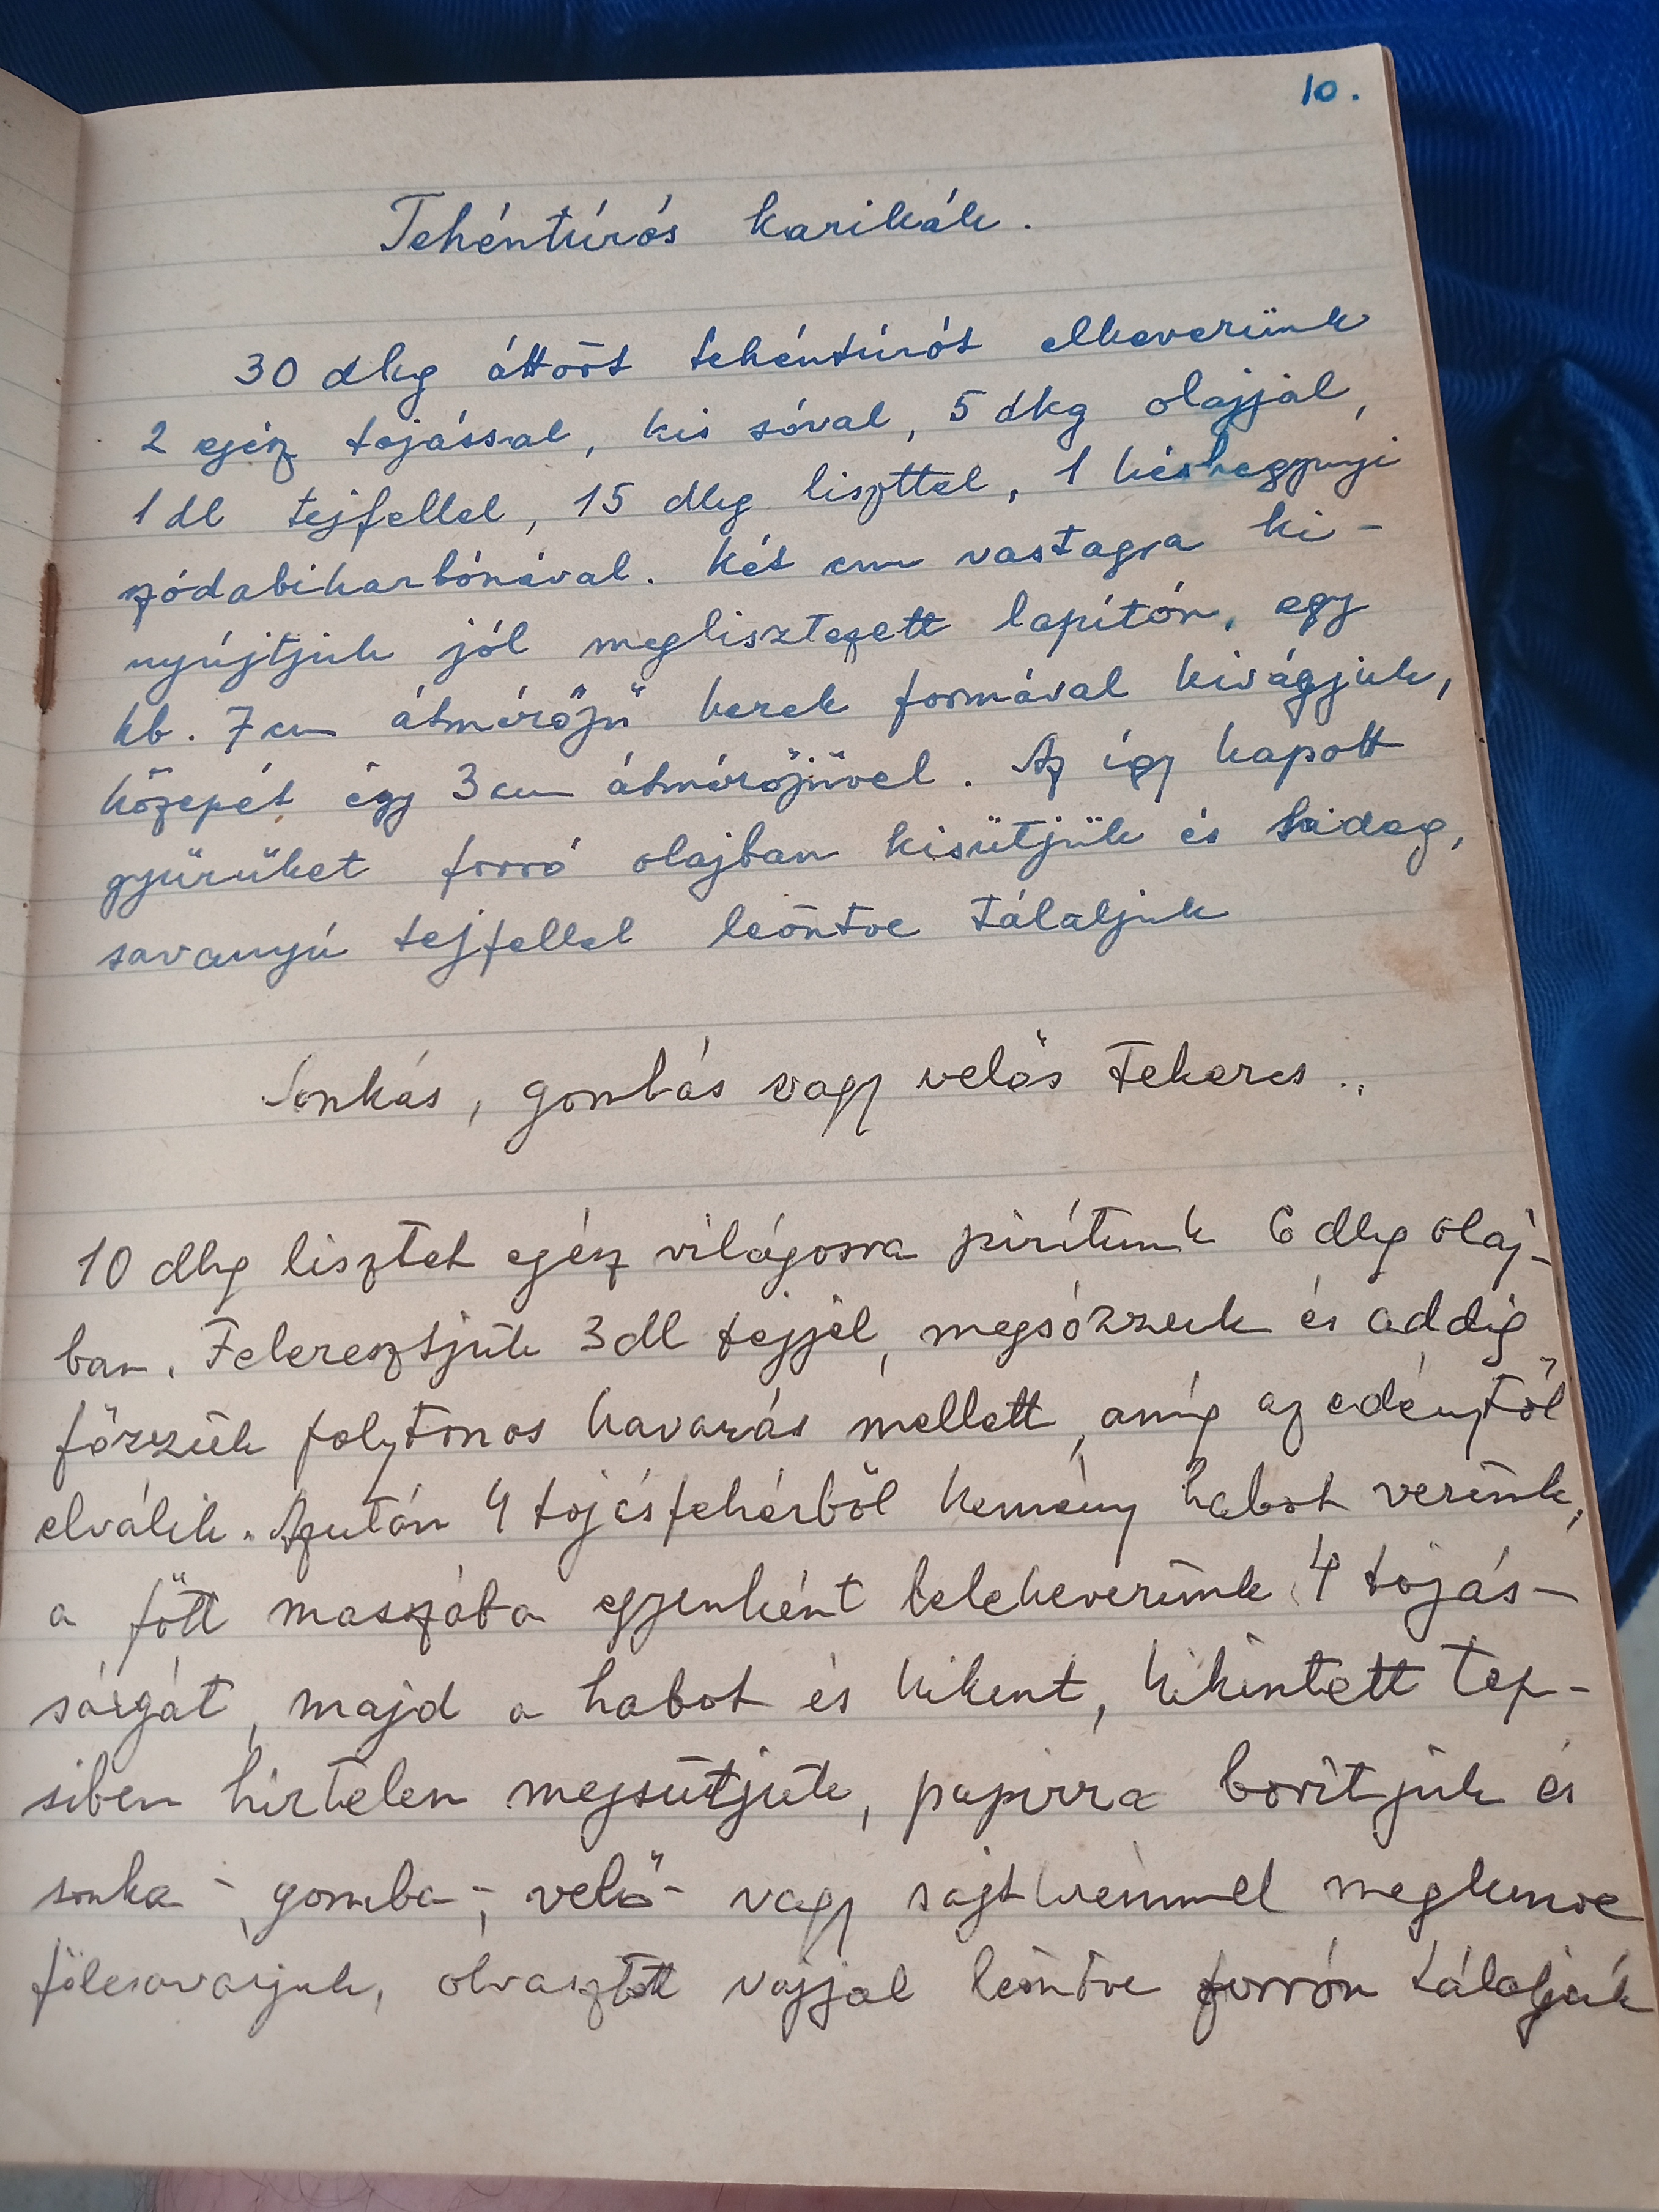 10.
Tehéntúrós karikák.
30 dkg áttört tehéntúrót elkeverünk
2 egész tojással, kis sóval, 5 dkg olajjal,
1 dl tejfellel, 15 dkg liszttel, 1 késhegynyi
szódabikarbónával. Két cm vastagra ki-
nyújtjuk jól meglisztezett lapítón, egy
kb. 7 cm átmérőjű kerek formával kivágjuk,
közepét egy 3 cm átmérőjűvel. Az így kapott
gyűrűket forró olajban kisütjük és hideg,
savanyú tejfellel leöntve tálaljuk
Sonkás, gombás vagy velős tekercs.
10 dkg lisztet egész világosra pirítunk 6 dkg olaj-
ban. Feleresztjük 3 dl tejjel, megsózzuk és addig
főzzük folytonos kavarás mellett, amíg az edénytől
elválik. Azután 4 tojásfehérből kemény habot verünk,
a főtt masszába egyenként belekeverünk 4 tojás-
sárgát, majd a habot és kikent, kihintett tep-
siben hirtelen megsütjük, papirra borítjuk és
sonka-, gomba-, velő- vagy sajtkrémmel megkenve
fölcsavarjuk, olvasztott vajjal leöntve forrón tálaljuk